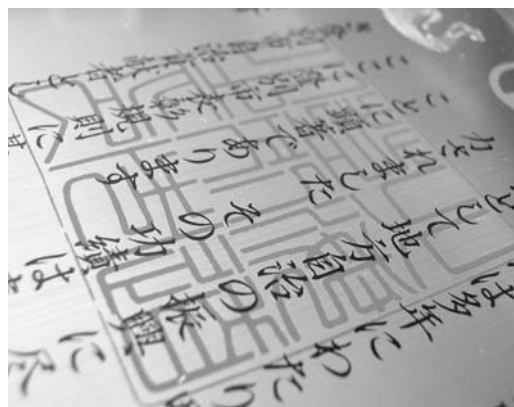 は多年にわたり
として地方自治の振興に尽
力されました その功績は
ことに顕著であります
ここに登別市表彰規則に
登別市自治貢献者とし